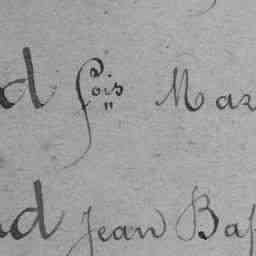 d fois Mar
d Jean Bap